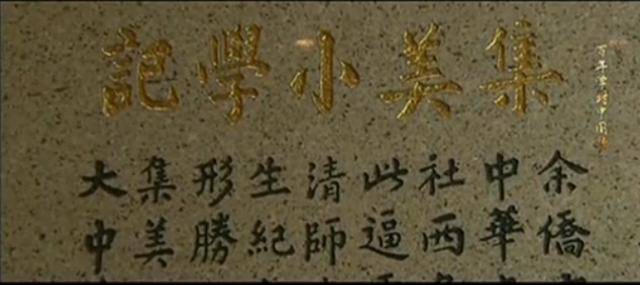 集美小學記
余僑
中華
社西
此逼
清師
生紀
形勝
集美
大中